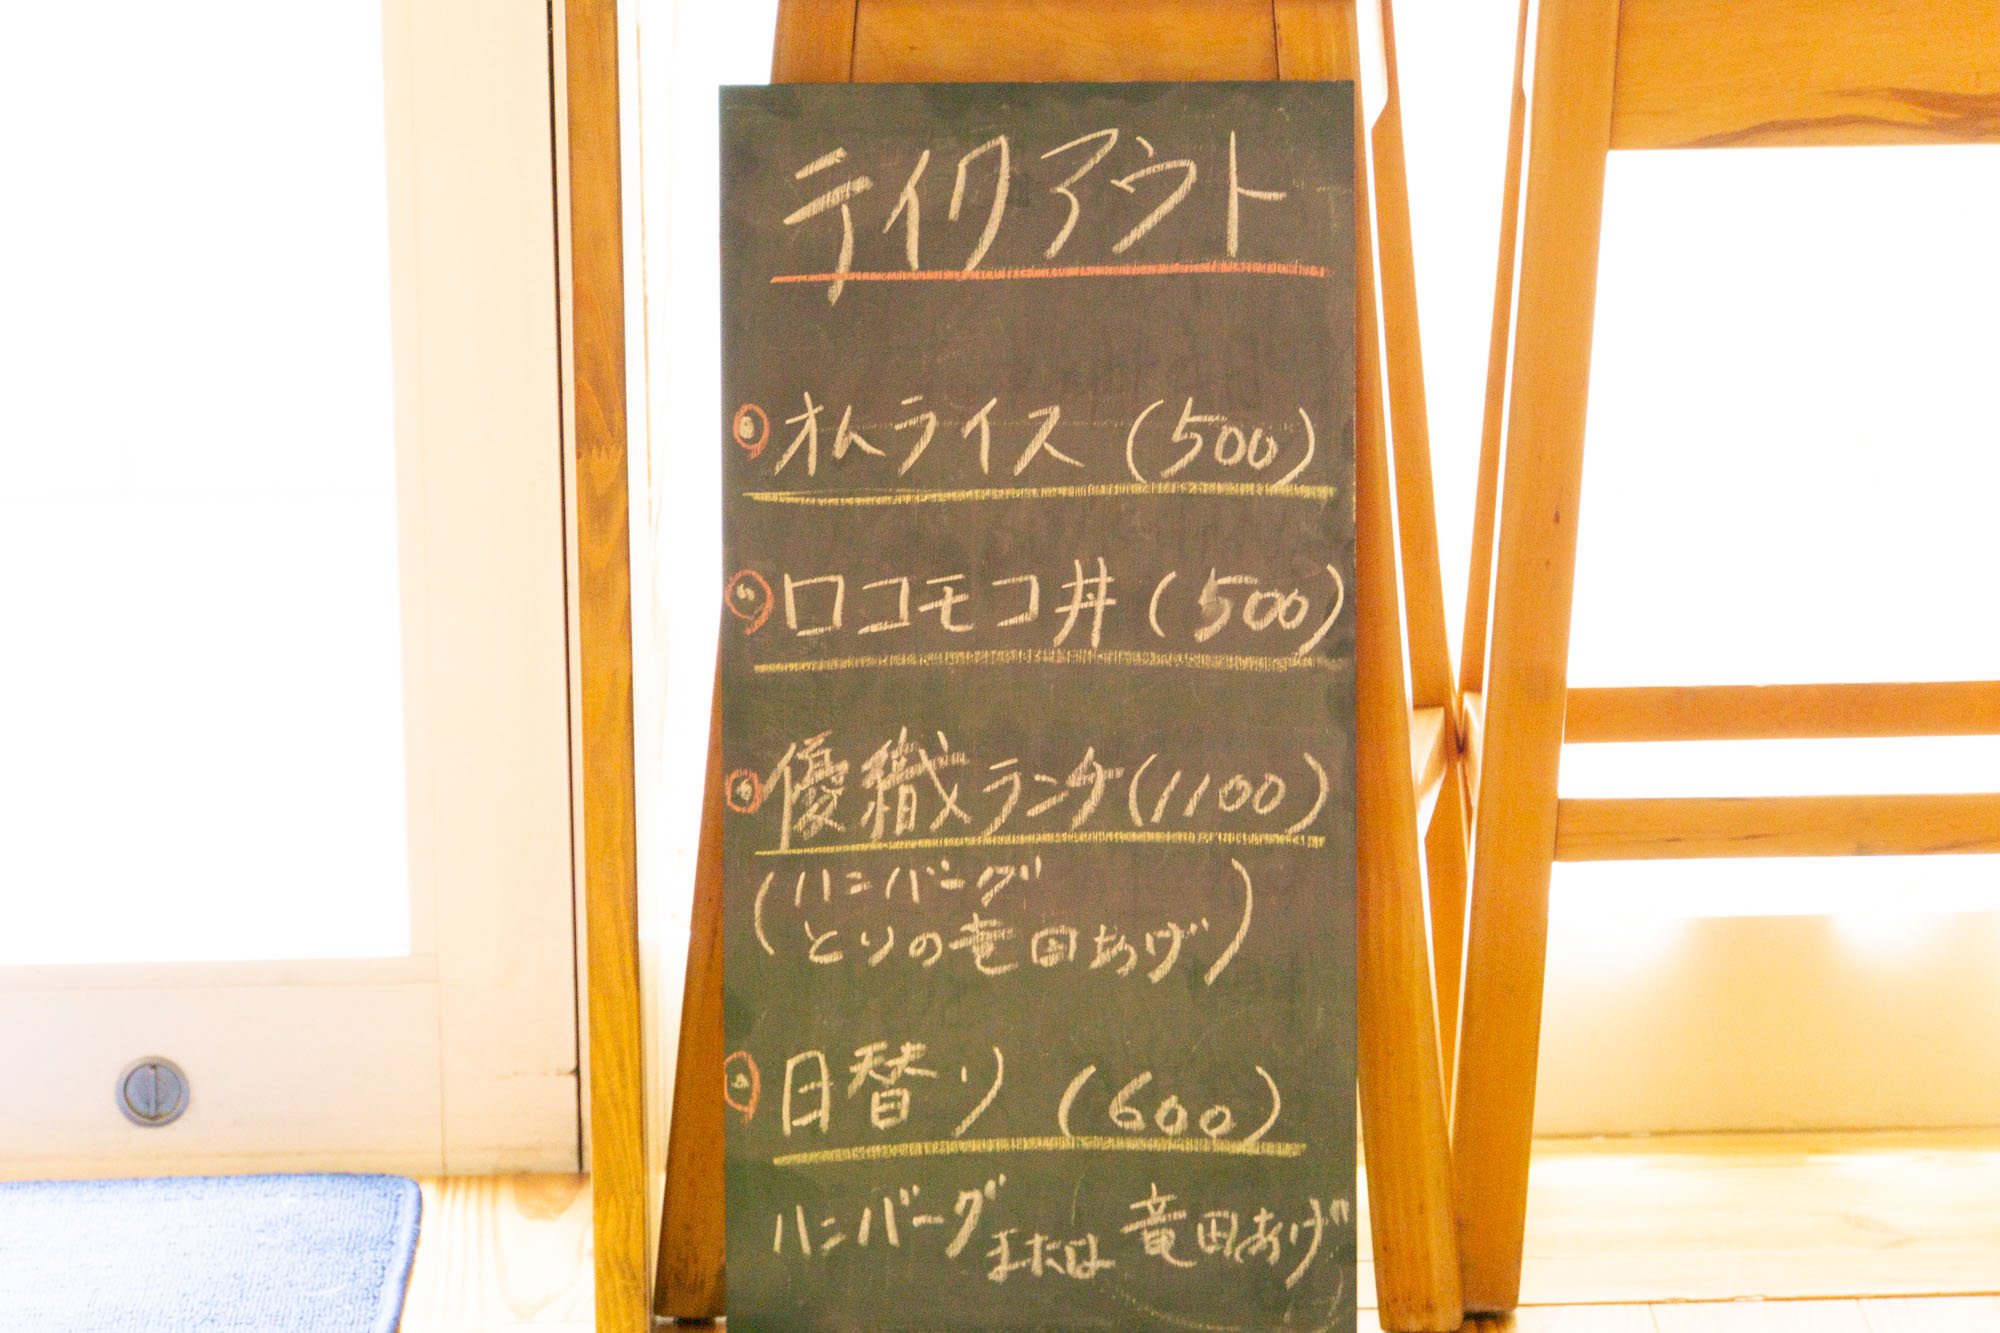 テイクアウト
オムライス (500)
ロコモコ丼 (500)
優織ランチ (1100)
(ハンバーグ
とりの竜田あげ)
日替り (600)
ハンバーグ または 竜田あげ